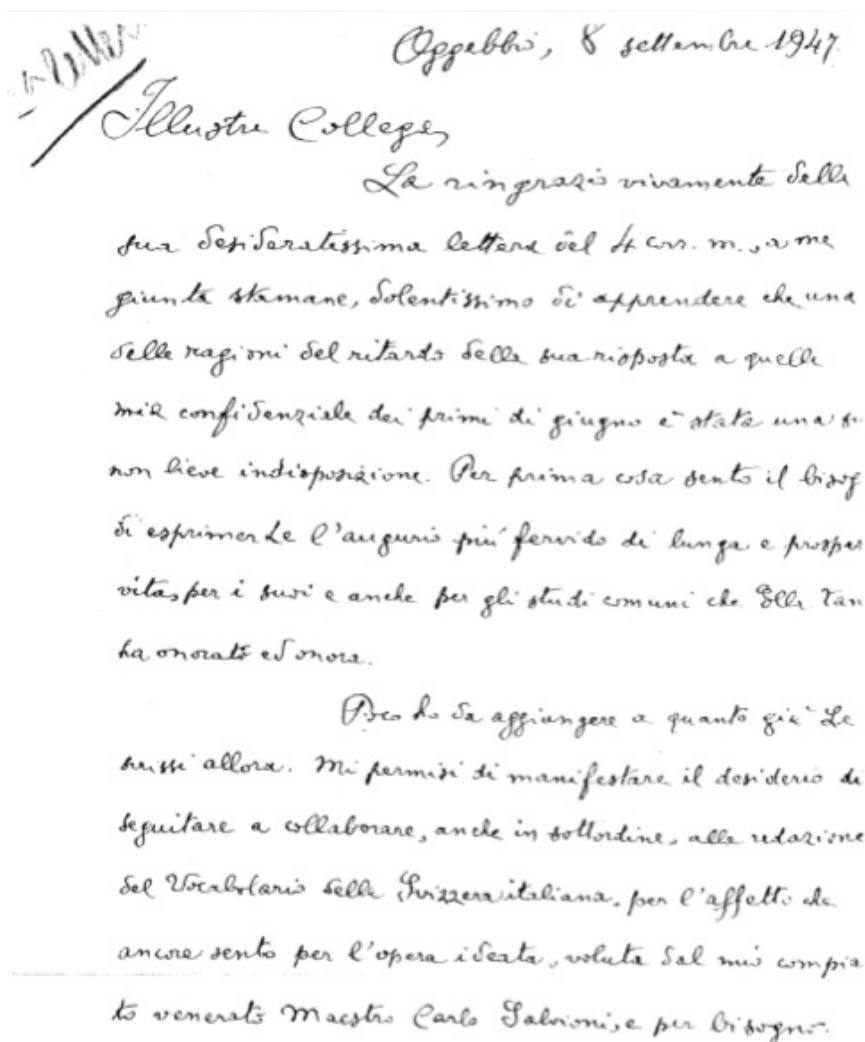 Oggebbio, 8 settembre 1947
Illustre Collega,
La ringrazio vivamente della
sua desideratissima lettera del 4 corr. m., a me
giunta stamane, dolentissimo di apprendere che una
delle ragioni del ritardo della sua risposta a quella
mia confidenziale dei primi di giugno è stata una
non lieve indisposizione. Per prima cosa sento il bisog
di esprimerLe l'augurio più fervido di lunga e prosper
vita, per i suoi e anche per gli studi comuni che Ella tan
ha onorato ed onora.
Poco ho da aggiungere a quanto già Le
scrissi allora. Mi permisi di manifestare il desiderio di
seguitare a collaborare, anche in sottordine, alla redazione
del Vocabolario della Svizzera italiana, per l'affetto che
ancora sento per l'opera ideata, voluta dal mio compia
to venerato Maestro Carlo Salvioni, e per bisogno.